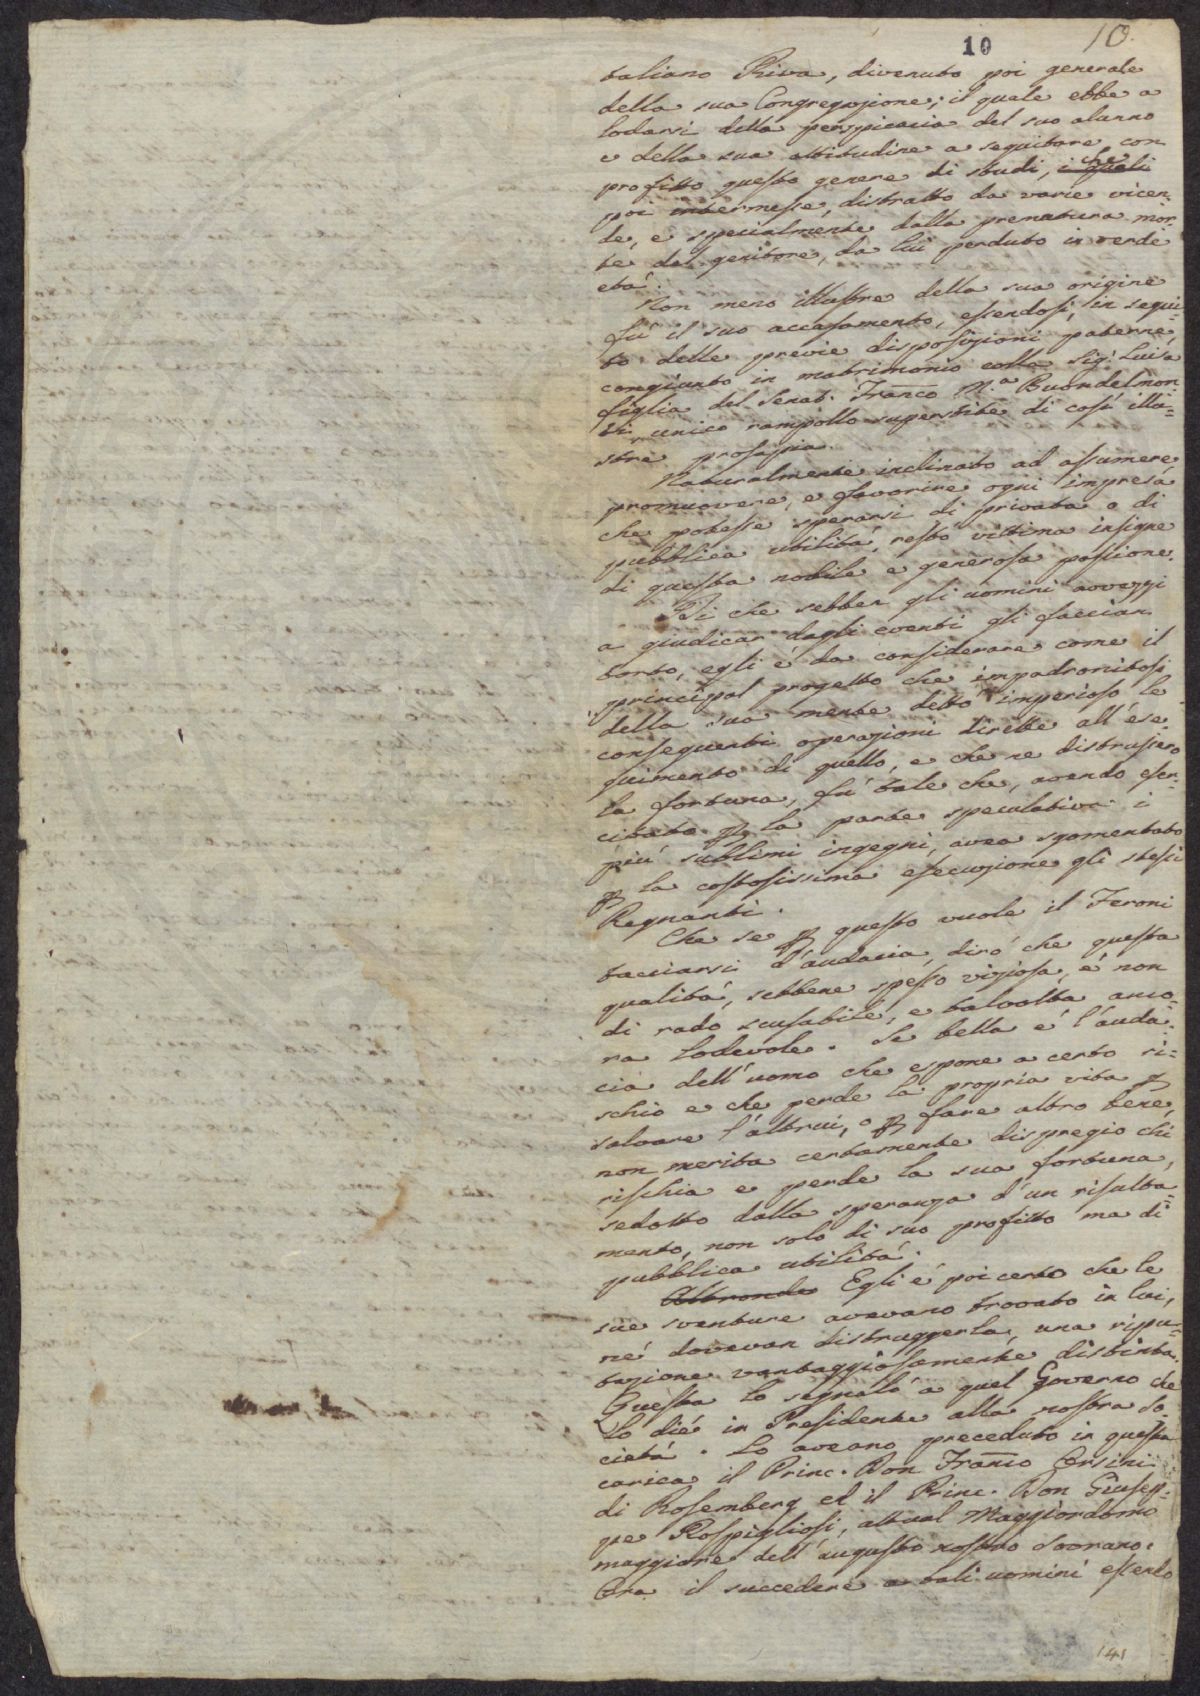 10 10.
taliano Riva, divenuto poi generale
della sua Congregazione; il quale ebbe a
lodarsi della perspicacia del suo alunno
e della sua attitudine a seguitare con
profitto questo genere di studi, i quali che
poi intermesse, distratto da varie vicen-
de, e specialmente dalla prematura mor-
te del genitore, da lui perduto in verde
età.
Non meno illustre della sua origine
fù il suo accasamento, essendosi, in segui-
to delle previe disposizioni paterne,
congiunto in matrimonio colla Sig.ª Luisa
figlia del Senat. Franco M.ª Buondelmon-
ti, unico rampollo superstite di così illu-
stre prosapia.
Naturalmente inclinato ad assumere
promuovere, e favorire ogni impresa
che potesse sperarsi di privata o di
pubblica utilità, restò vittima insigne
di questa nobile e generosa passione.
Di che sebben gli uomini avvezzi
a giudicar dagli eventi gli faccian
torto, egli è da considerare come il
principal progetto che impadronitosi
della sua mente dettò imperioso le
conseguenti operazioni dirette all'ese-
guimento di quello, e che ne distrussero
la fortuna, fù tale che, avendo eser-
citato p la parte speculativa i
più sublimi ingegni, avea sgomentato
p la costosissima esecuzione gli stessi
Regnanti.
Che se p questo vuole il Feroni
tacciarsi d'audacia, dirò che questa
qualità, sebbene spesso viziosa, è non
di rado scusabile, e talvolta anco-
ra lodevole. Se bella è l'auda-
cia dell'uomo che espone a certo ri-
schio e che perde la propria vita p
salvare l'altrui, o p fare altro bene,
non merita certamente dispregio chi
rischia e perde la sua fortuna,
sedotto dalla speranza d'un risulta-
mento, non solo di suo profitto ma di
pubblica utilità.
Altronde Egli è poi certo che le
sue sventure avevano trovato in lui,
né dovevan distruggerla, una ripu-
tazione vantaggiosamente distinta.
Questa lo segnalò a quel Governo che
lo diè in Presidente alla nostra So-
cietà. Lo aveano preceduto in questa
carica il Princ. Don Franco Orsini
di Rosemberg ed il Princ. Don Giusep-
pe Rospigliosi, attual Maggiordomo
maggiore dell'augusto nostro Sovrano.
Ora il succedere a tali uomini essendo
141